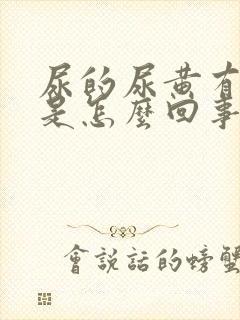 尿的尿黄有
是怎麼回事
會説話的螃蟹